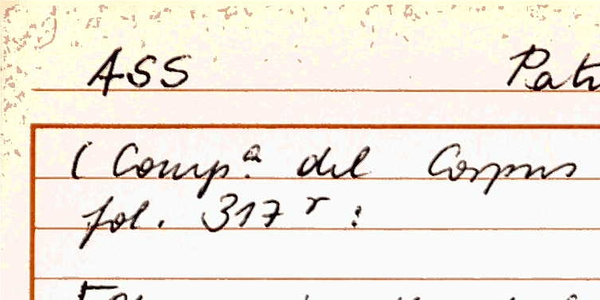 ASS
(Comp.ª del Corpus
fol. 317 r :